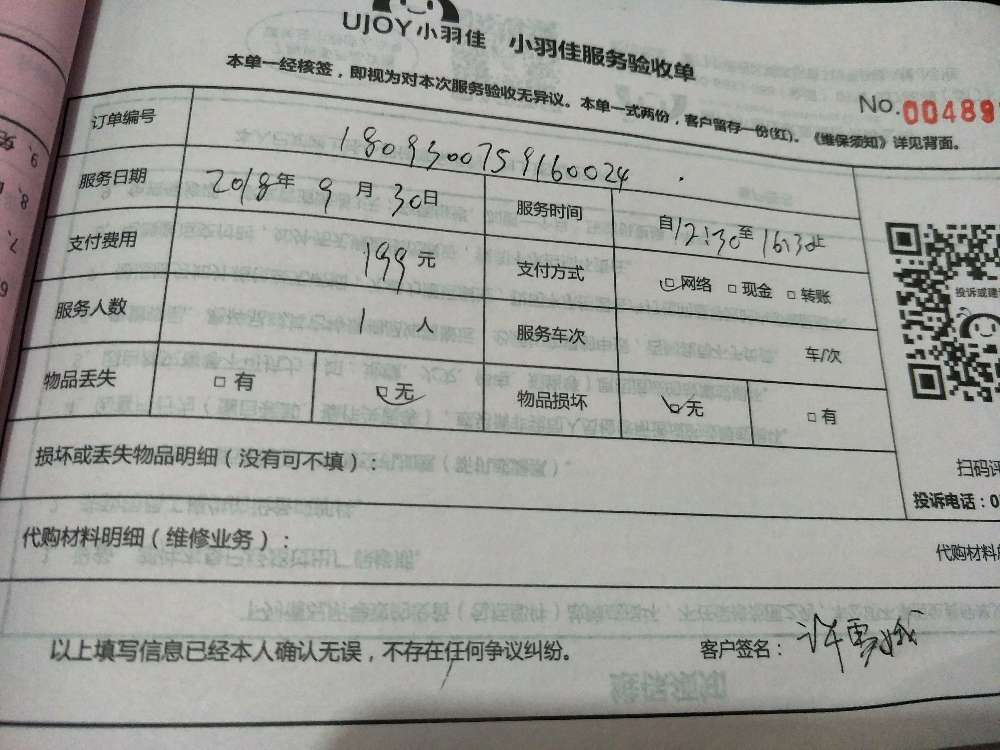 UJOY小羽佳 小羽佳服务验收单
本单一经核签，即视为对本次服务验收无异议。本单一式两份，客户留存一份(红)。《维保须知》详见背面。
No.00489
订单编号 1809300759160024
服务日期 2018年9月30日 服务时间 自12:30至16:30止
支付费用 199元 支付方式 □网络 □现金 □转账
服务人数 1人 服务车次 车/次
物品丢失 □有 □无 物品损坏 □无 □有
投诉或建
损坏或丢失物品明细（没有可不填）：
扫码评
投诉电话：0
代购材料明细（维修业务）： 代购材料
以上填写信息已经本人确认无误，不存在任何争议纠纷。 客户签名：